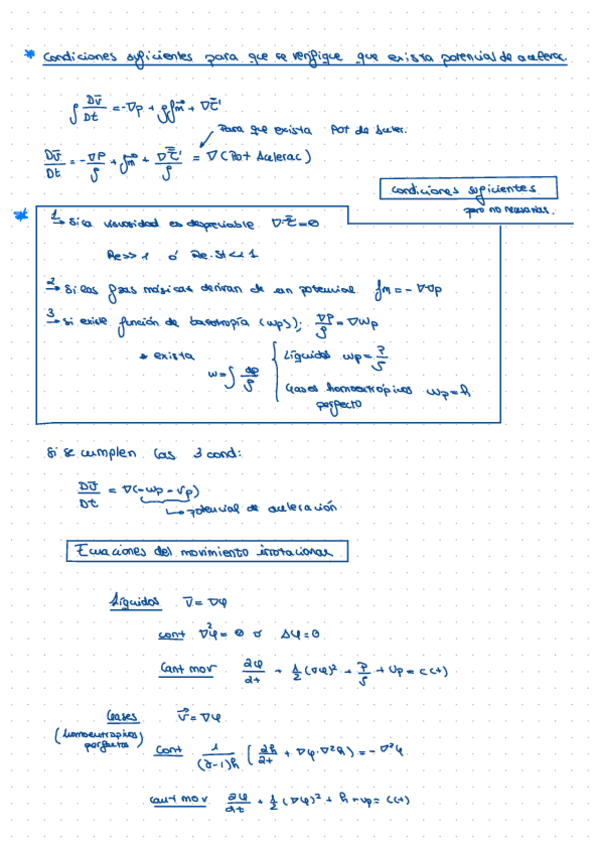 * Condiciones suficientes para que se verifique que exista potencial de acelerac.
ρ Dv̄/Dt = -∇p + ρf̄m + ∇τ̄'
Para que exista Pot de aceler.
Dv̄/Dt = -∇P/ρ + f̄m + ∇τ̄'/ρ = ∇(Pot Acelerac)
condiciones suficientes
pero no necesarias.
* 1→ Si la viscosidad es despreciable ∇·τ̄ = 0
Re>>1 ó Re·St<<1
2→ Si las fzas másicas derivan de un potencial fm = -∇Up
3→ Si existe función de barotropía (wp); ∇P/ρ = ∇wp
* exista
w = ∫ dp/ρ
Líquidos wp = P/ρ
Gases homoentrópicos wp = h
perfecto
Si se cumplen las 3 cond:
Dv̄/Dt = ∇(-wp - Up)
↳ potencial de aceleración
Ecuaciones del movimiento irrotacional
Líquidos v̄ = ∇φ
cont ∇²φ = 0 o Δφ = 0
Cant mov ∂φ/∂t + 1/2 (∇φ)² + P/ρ + Up = C(t)
Gases v̄ = ∇φ
(homoentrópicos
perfectos)
Cont 1/((γ-1)h) (∂h/∂t + ∇φ·∇²h) = -∇²φ
cant mov ∂φ/∂t + 1/2 (∇φ)² + h + Up = C(t)